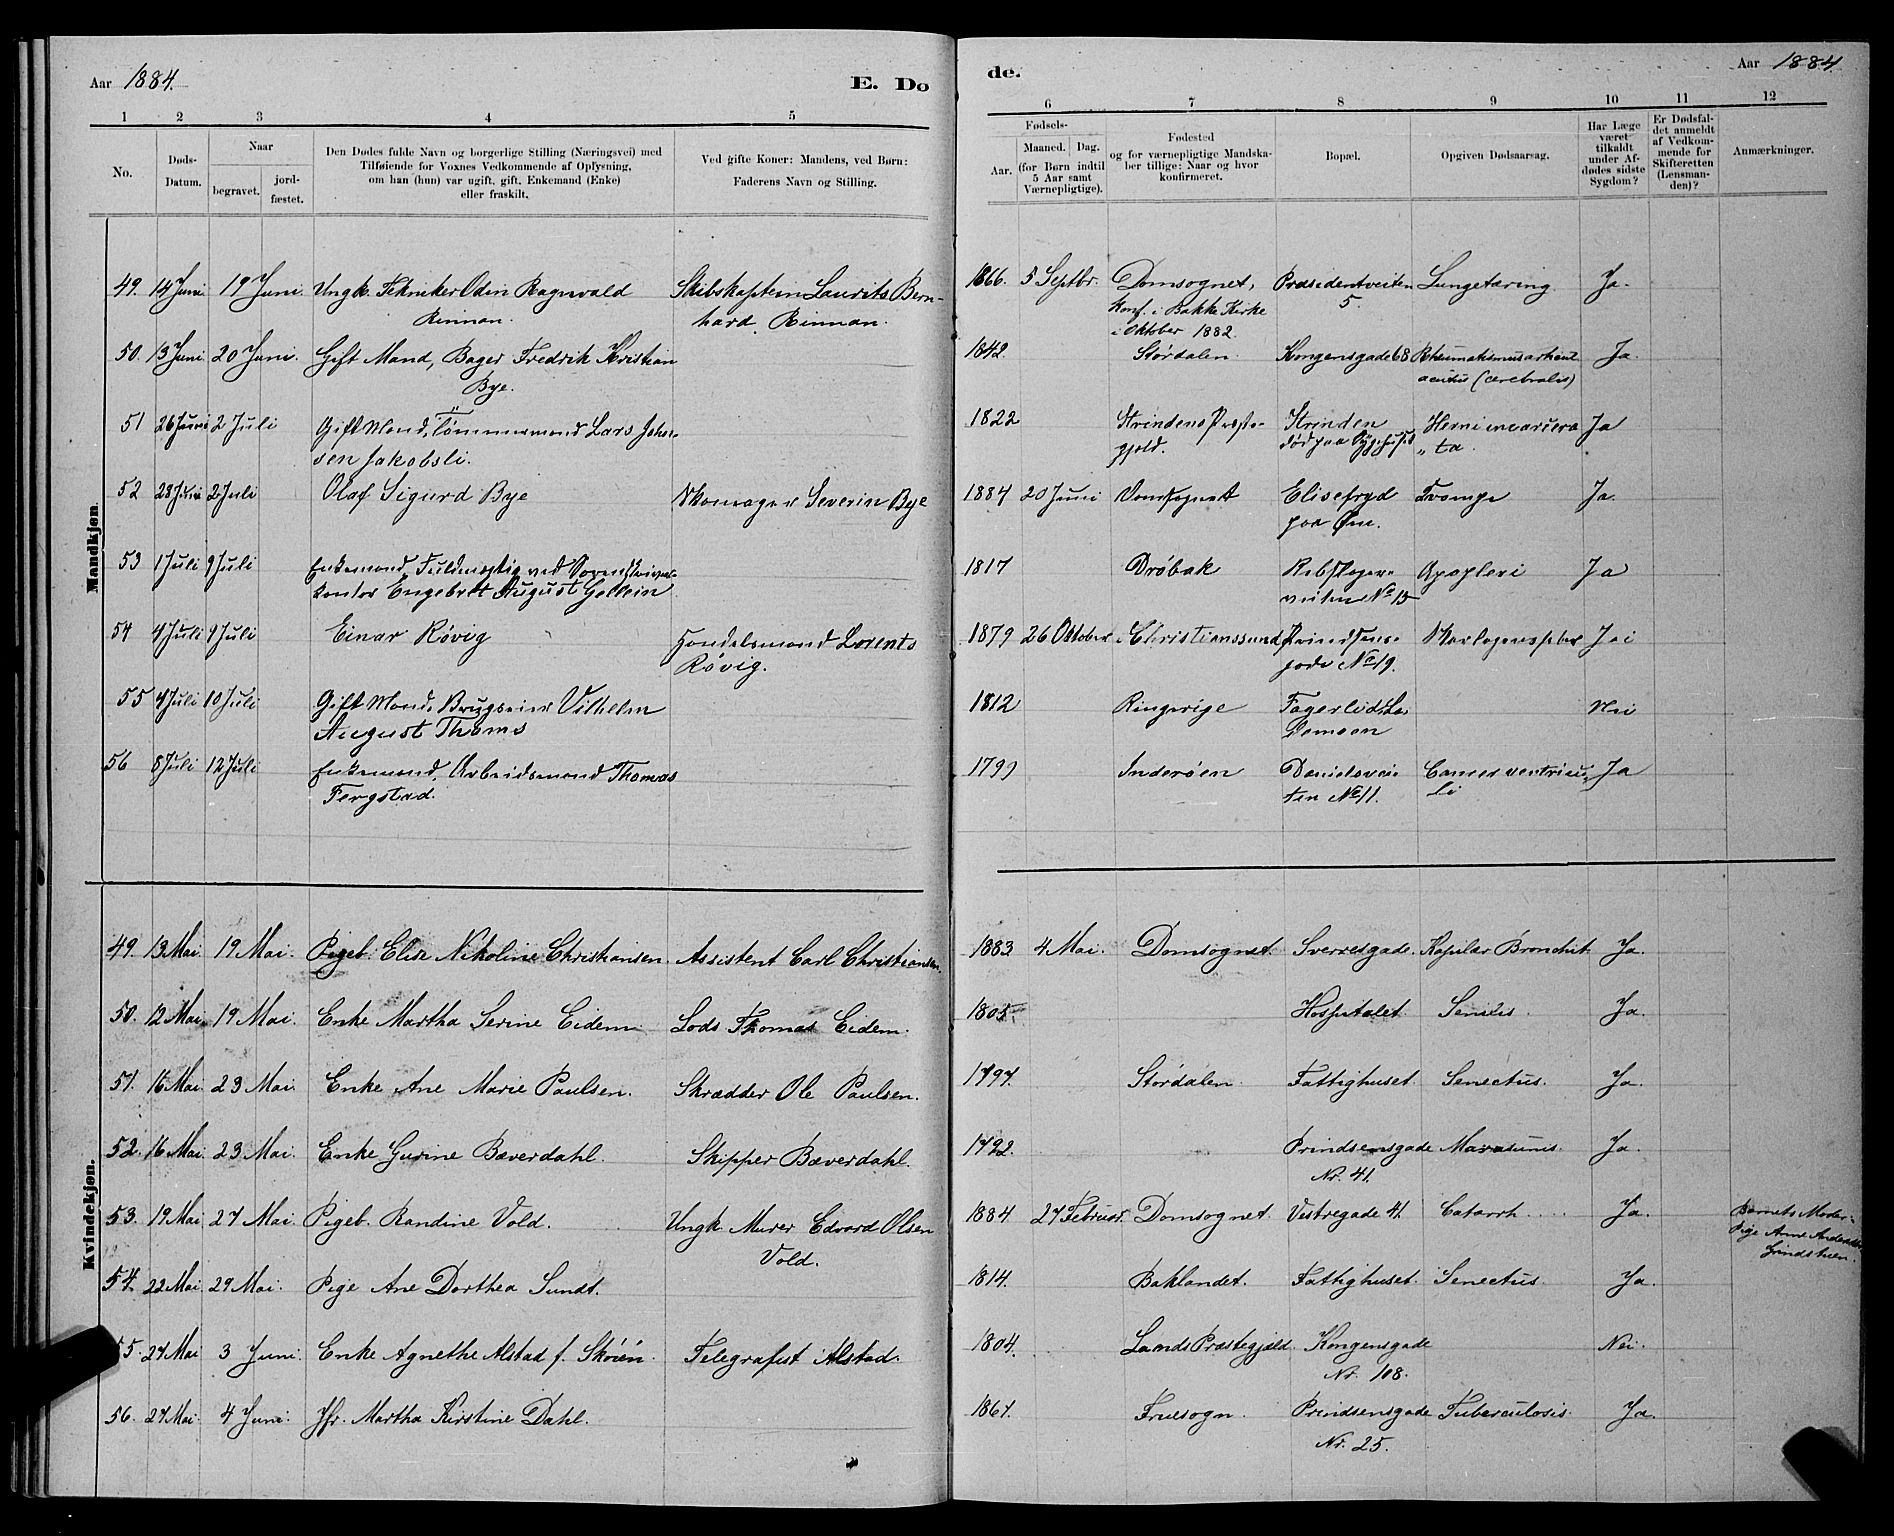 Aar 1884. E. Do de. Aar 1884
1 2 3 4 5 6 7 8 9 10 11 12
No.
Døds-
Datum.
Naar
begravet.
jord-
fæstet.
Den Dødes fulde Navn og borgerlige Stilling (Næringsvei) med
Tilføiende for Voxnes Vedkommende af Oplysning,
om han (hun) var ugift, gift, Enkemand (Enke)
eller fraskilt.
Ved gifte Koner: Mandens, ved Børn:
Faderens Navn og Stilling.
Fødsels-
Aar.
Maaned. Dag.
(for Børn indtil
5 Aar samt
Værnepligtige).
Fødested
og for værnepligtige Mandska-
ber tillige: Naar og hvor
konfirmeret.
Bopæl.
Opgiven Dødsaarsag.
Har Læge
været
tilkaldt
under Af-
dødes sidste
Sygdom?
Er Dødsfal-
det anmeldt
af Vedkom-
mende for
Skifteretten
(Lensman-
den)?
Anmærkninger.
Mandkjøn.
49. 14 Juni 19 Juni. Ungk. Tekniker Odin Ragnvald Skibskaptein Laurits Bern- 1866. 5 Septbr. Domsognet, Præsidentveiten Lungetæring Ja.
Rinnan. hard Rinnan. Konf. i Bakke Kirke 5.
i Oktober 1882.
50. 13 Juni 20 Juni. Gift Mand, Bager Fredrik Kristian 1842. Stördalen. Kongensgade 68 Rheumatismus articul Ja.
Bye. acutus (cerebralis)
51 26 Juni 2 Juli Gift Mand, Tömmermand Lars Johan- 1822 Strindens Præste- Strinden Herni incarcera Ja
sen Jakobsli. gjeld. död paa Sygehuset „ ta.
52 28 Juni 2 Juli Olaf Sigurd Bye Skomager Severin Bye 1884 20 Juni Domsognet Elisefryd Trompe Ja.
paa Øen.
53 1 Juli 9 Juli Enkemand, Fuldmægtig ved Sorenskriver- 1817 Dröbak Rebslager- Apoplexi Ja
kontor Engebret August Gellein veiten No 13
54 4 Juli 9 Juli Einar Rövig Handelsmand Lorents 1879 26 Oktober Christianssund Prindsens- Skarlagensfeber Ja
Rövig. gade No 19.
55 4 Juli 10 Juli Gift Mand, Brugseier Vilhelm 1812 Ringerige Fagerlid La- Nei
August Thams demoen
56 8 Juli 12 Juli Enkemand, Arbeidsmand Thomas 1799 Inderøen Danielsvei- Cancer ventricu- Ja
Fergstad. ten No 11. li
Kvindekjøn.
49. 13 Mai 19 Mai. Pigeb. Elise Nikoline Christiansen. Assistent Carl Christiansen. 1883 4 Mai. Domsognet. Sverresgade. Kapilar Bronchit Ja.
50. 12 Mai 19 Mai. Enke Martha Serine Eidem Lods Thomas Eidem. 1805 Hospitalet Senilis. Ja.
51. 16 Mai 23 Mai Enke Ane Marie Paulsen. Skrædder Ole Paulsen. 1797. Stördalen. Fattighuset. Senectus. Ja.
52. 16 Mai 23 Mai. Enke Gurine Bæverdahl. Skipper Bæverdahl. 1792. Prindsensgade Marasmus. Ja.
Nr. 41.
53. 19 Mai 27 Mai. Pigeb. Randine Vold. Ungk. Murer Edvard Olsen 1884. 27 Februar. Domsognet. Vestregade 41. Catarrh. Ja. Barnets Moder:
Vold. Pige Ane Andersdtr
Lindstuen.
54. 22 Mai 29 Mai. Pige Ane Dorthea Sundt. 1814. Baklandet. Fattighuset. Senectus. Ja.
55. 27 Mai 3 Juni. Enke Agnethe Alstad f. Skóien. Telegrafist Alstad. 1804. Lands Præstegjeld. Kongensgade Nei.
Nr. 108.
56. 27 Mai. 4 Juni. Jfr. Martha Kirstine Dahl. 1867. Fruesogn. Prindsensgade Tuberculosis. Ja.
Nr. 25.